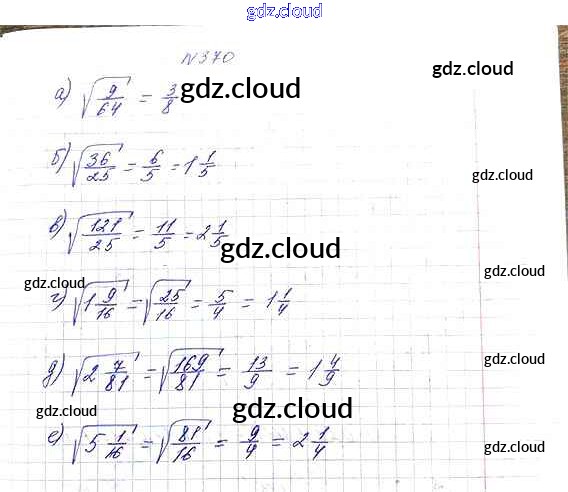 gdz.cloud
N370
gdz.cloud
а) √(9/64) = 3/8
gdz.cloud
б) √(36/25) = 6/5 = 1 1/5
gdz.cloud
в) √(121/25) = 11/5 = 2 1/5
gdz.cloud
gdz.cloud
gdz.cloud
г) √(1 9/16) = √(25/16) = 5/4 = 1 1/4
д) √(2 7/81) = √(169/81) = 13/9 = 1 4/9
gdz.cloud
gdz.cloud
gdz.cloud
е) √(5 1/16) = √(81/16) = 9/4 = 2 1/4
gdz.cloud
gdz.cloud